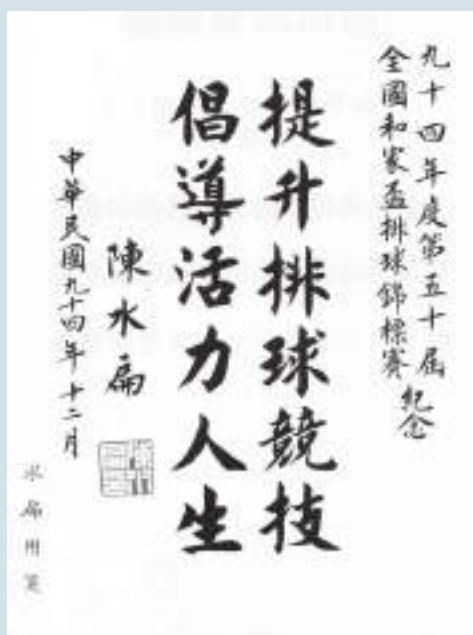 九十四年度第五十屆
全國和家盃排球錦標賽 紀念
提升排球競技
倡導活力人生
陳水扁
中華民國九十四年十二月
水扁用箋